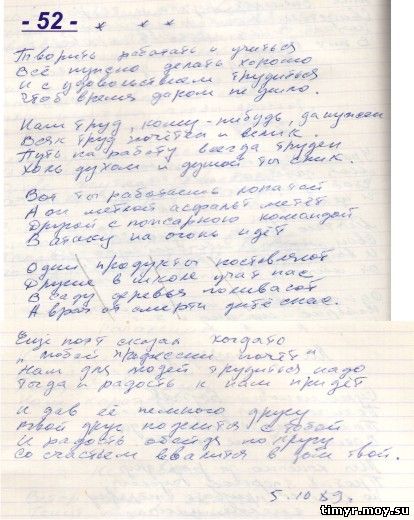 - 52 - * * *
Творить работать и учиться
Всё нужно делать хорошо
И с удовольствием трудиться
Чтоб время даром не ушло.
Наш труд, кому-нибудь, да нужен
Всяк труд почётен и велик.
Путь на работу всегда труден
Хоть духом и душой ты сник.
Вот ты работаешь лопатой
А он метлой асфальт метёт
Другой с пожарною командой
В атаку на огонь идёт
Одни продукты поставляют
Другие в школе учат нас
В саду деревья поливают
А врач от смерти дитё спас.
Ещё поэт сказал когдато
"Любой профессии почёт"
Нам для людей трудиться надо
Тогда и радость к нам придёт
И дав её немного другу
Твой друг поделится с тобой
И радость обойдя по кругу
Со счастьем ввалится в дом твой.
5.10 89.
timyr.moy.su